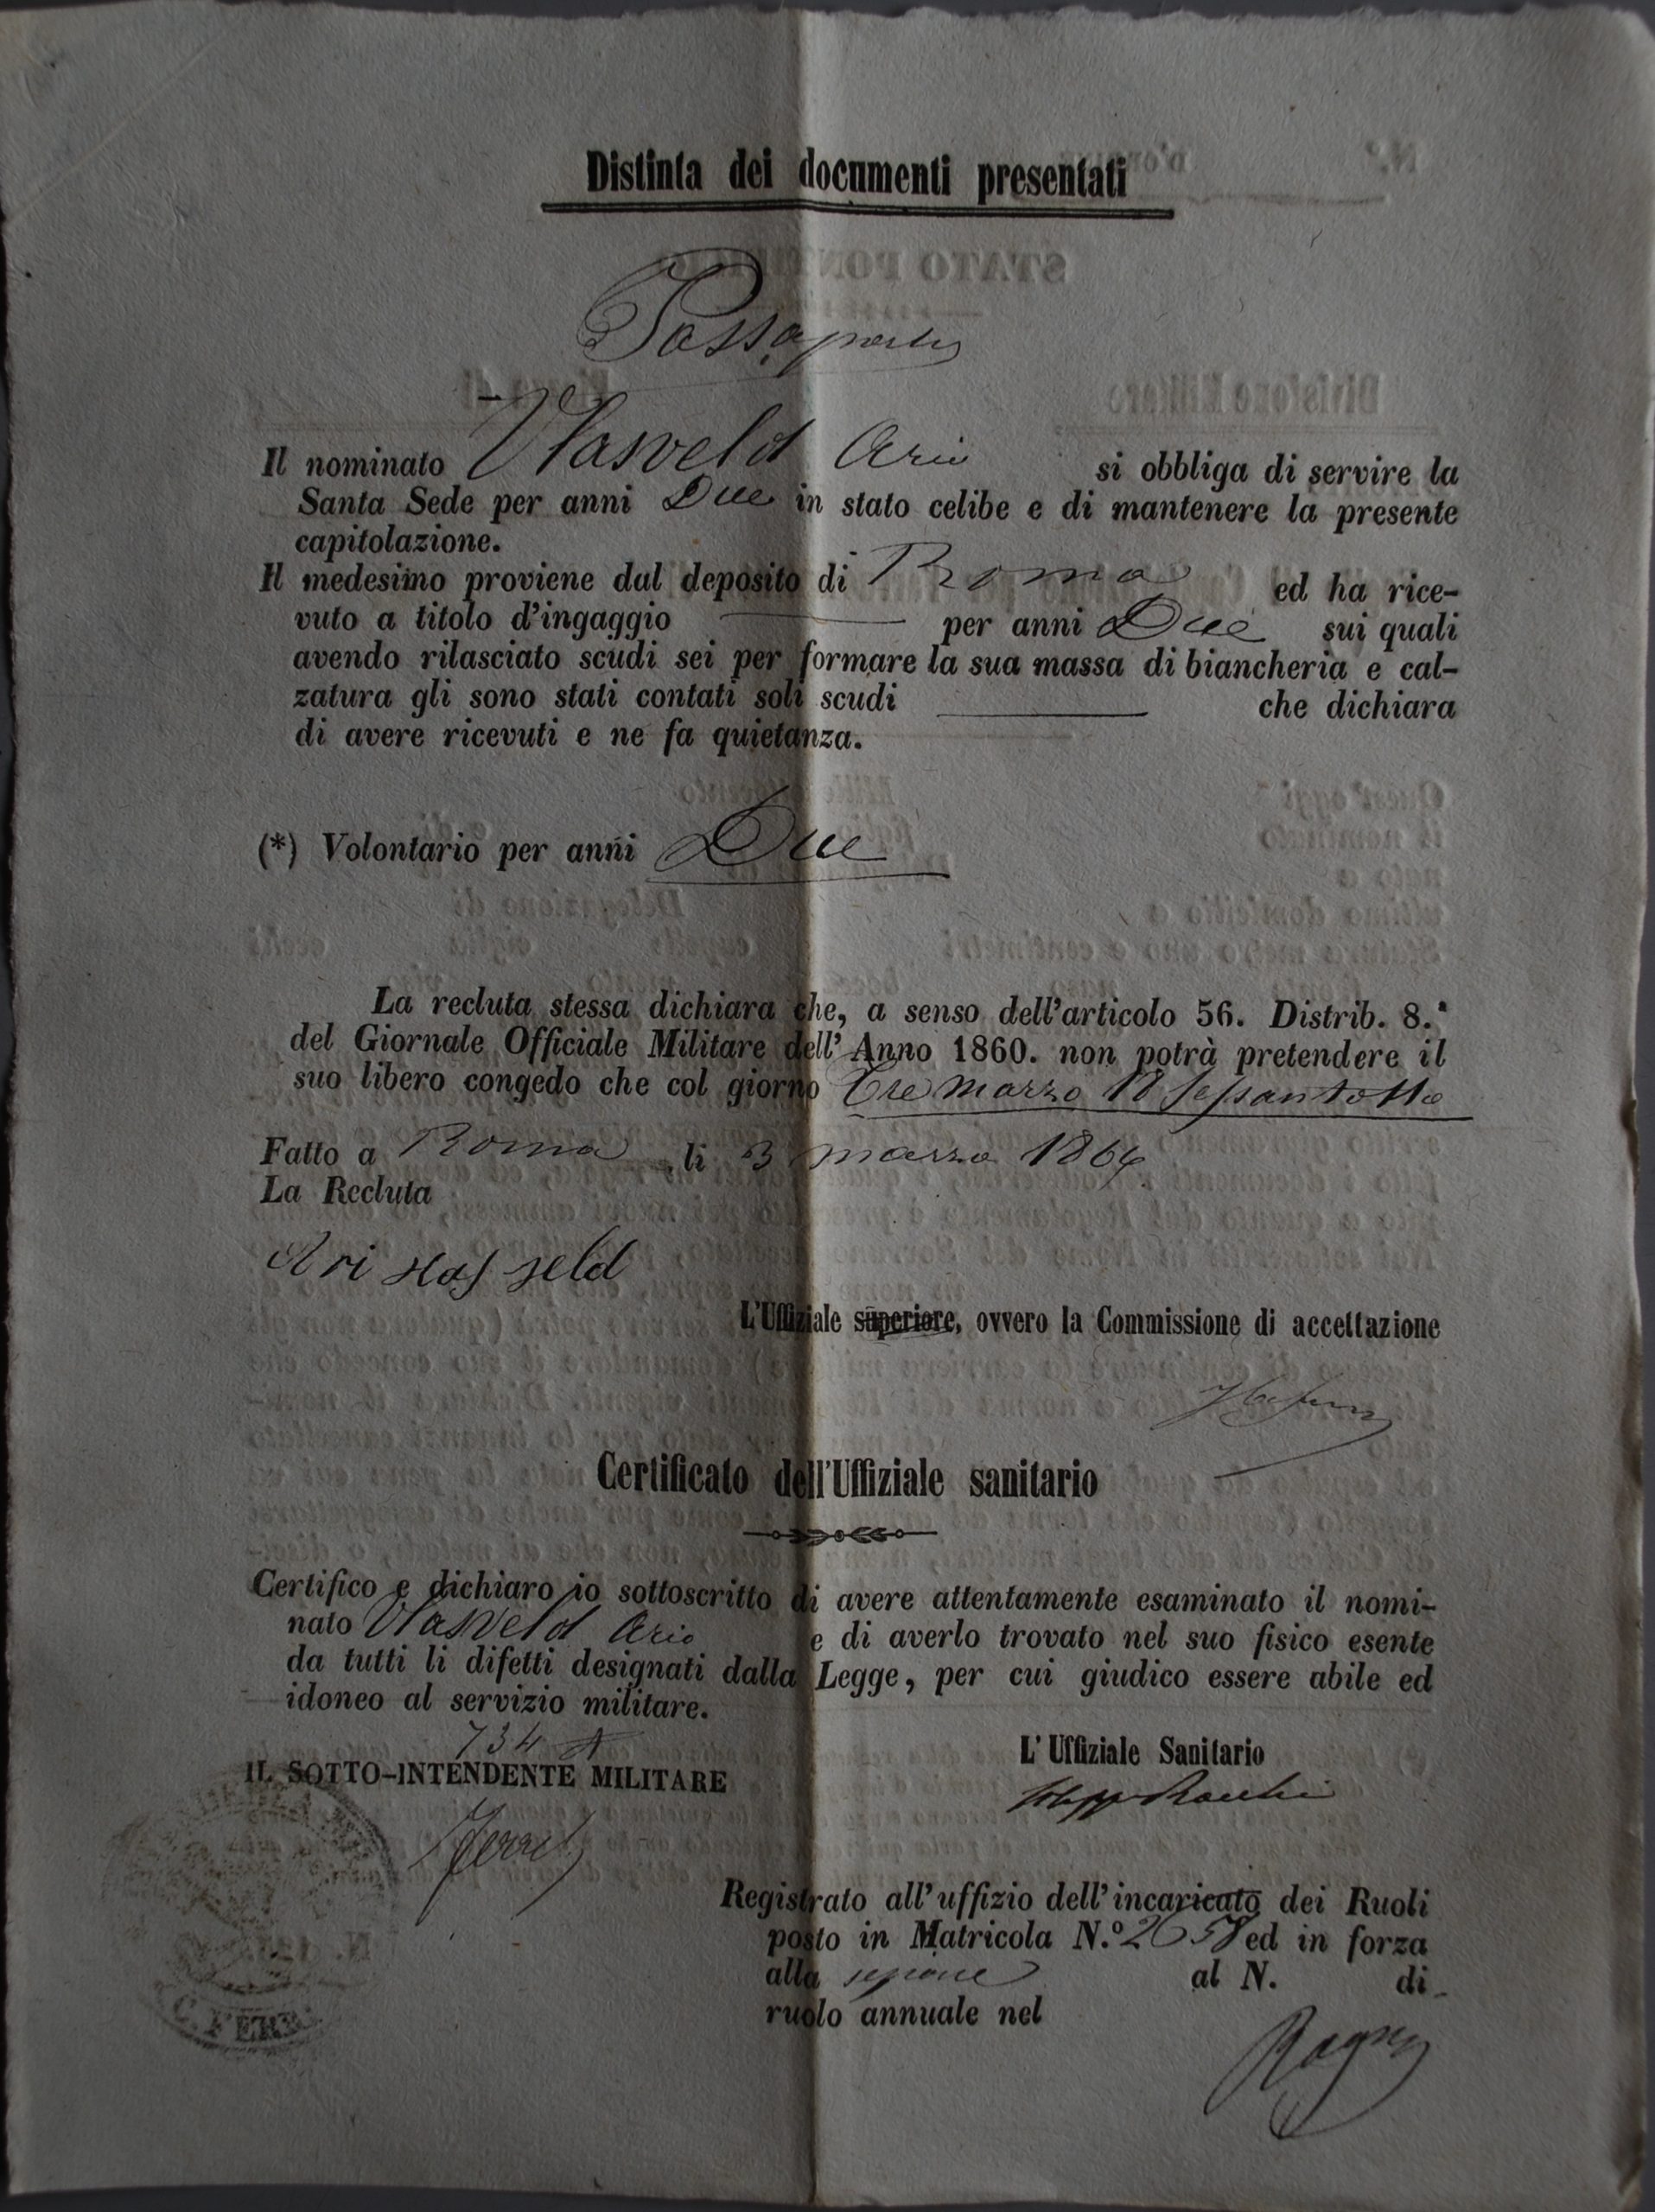 Distinta dei documenti presentati
Passaporto
Il nominato Hasveld Ario si obbliga di servire la
Santa Sede per anni Due in stato celibe e di mantenere la presente
capitolazione.
Il medesimo proviene dal deposito di Roma ed ha rice-
vuto a titolo d'ingaggio per anni Due sui quali
avendo rilasciato scudi sei per formare la sua massa di biancheria e cal-
zatura gli sono stati contati soli scudi che dichiara
di avere ricevuti e ne fa quietanza.
(*) Volontario per anni Due
La recluta stessa dichiara che, a senso dell'articolo 56. Distrib. 8.ª
del Giornale Officiale Militare dell'Anno 1860. non potrà pretendere il
suo libero congedo che col giorno Tre marzo 18 sessantotto
Fatto a Roma li 3 marzo 1866
La Recluta
Ari Hasfeld
L'Uffiziale superiore, ovvero la Commissione di accettazione
Certificato dell'Uffiziale sanitario
Certifico e dichiaro io sottoscritto di avere attentamente esaminato il nomi-
nato Hasveld Ario e di averlo trovato nel suo fisico esente
da tutti li difetti designati dalla Legge, per cui giudico essere abile ed
idoneo al servizio militare.
734
IL SOTTO-INTENDENTE MILITARE
L'Uffiziale Sanitario
Registrato all'uffizio dell'incaricato dei Ruoli
posto in Matricola N.º 2658 ed in forza
alla al N. di
ruolo annuale nel